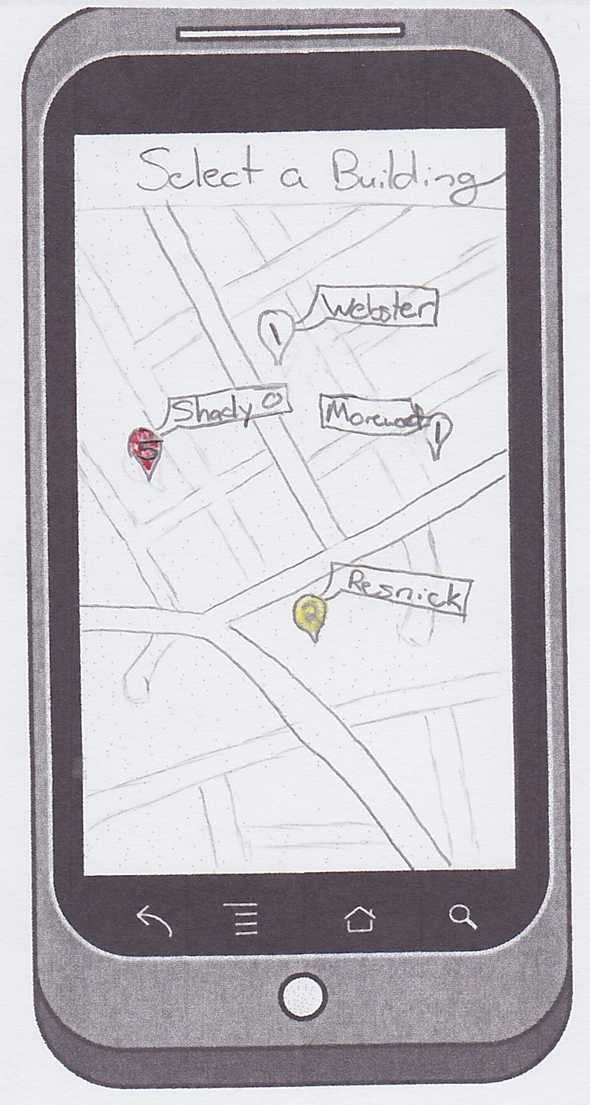 Select a Building
1
Webster
Shady O
Morewood
1
5
Resnick